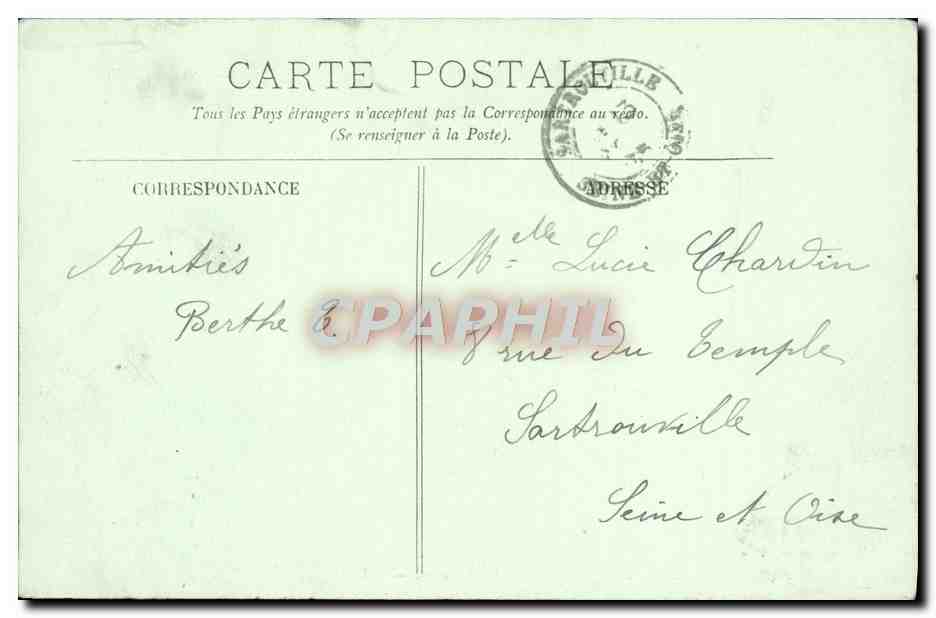 CARTE POSTALE
Tous les Pays étrangers n'acceptent pas la Correspondance au recto.
(Se renseigner à la Poste).
SARTROUVILLE
SEINE-ET-OISE
CORRESPONDANCE
ADRESSE
Amitiés
Berthe E.
Melle Lucie Chardin
8 rue du Temple
Sartrouville
Seine et Oise
CPAPHIL